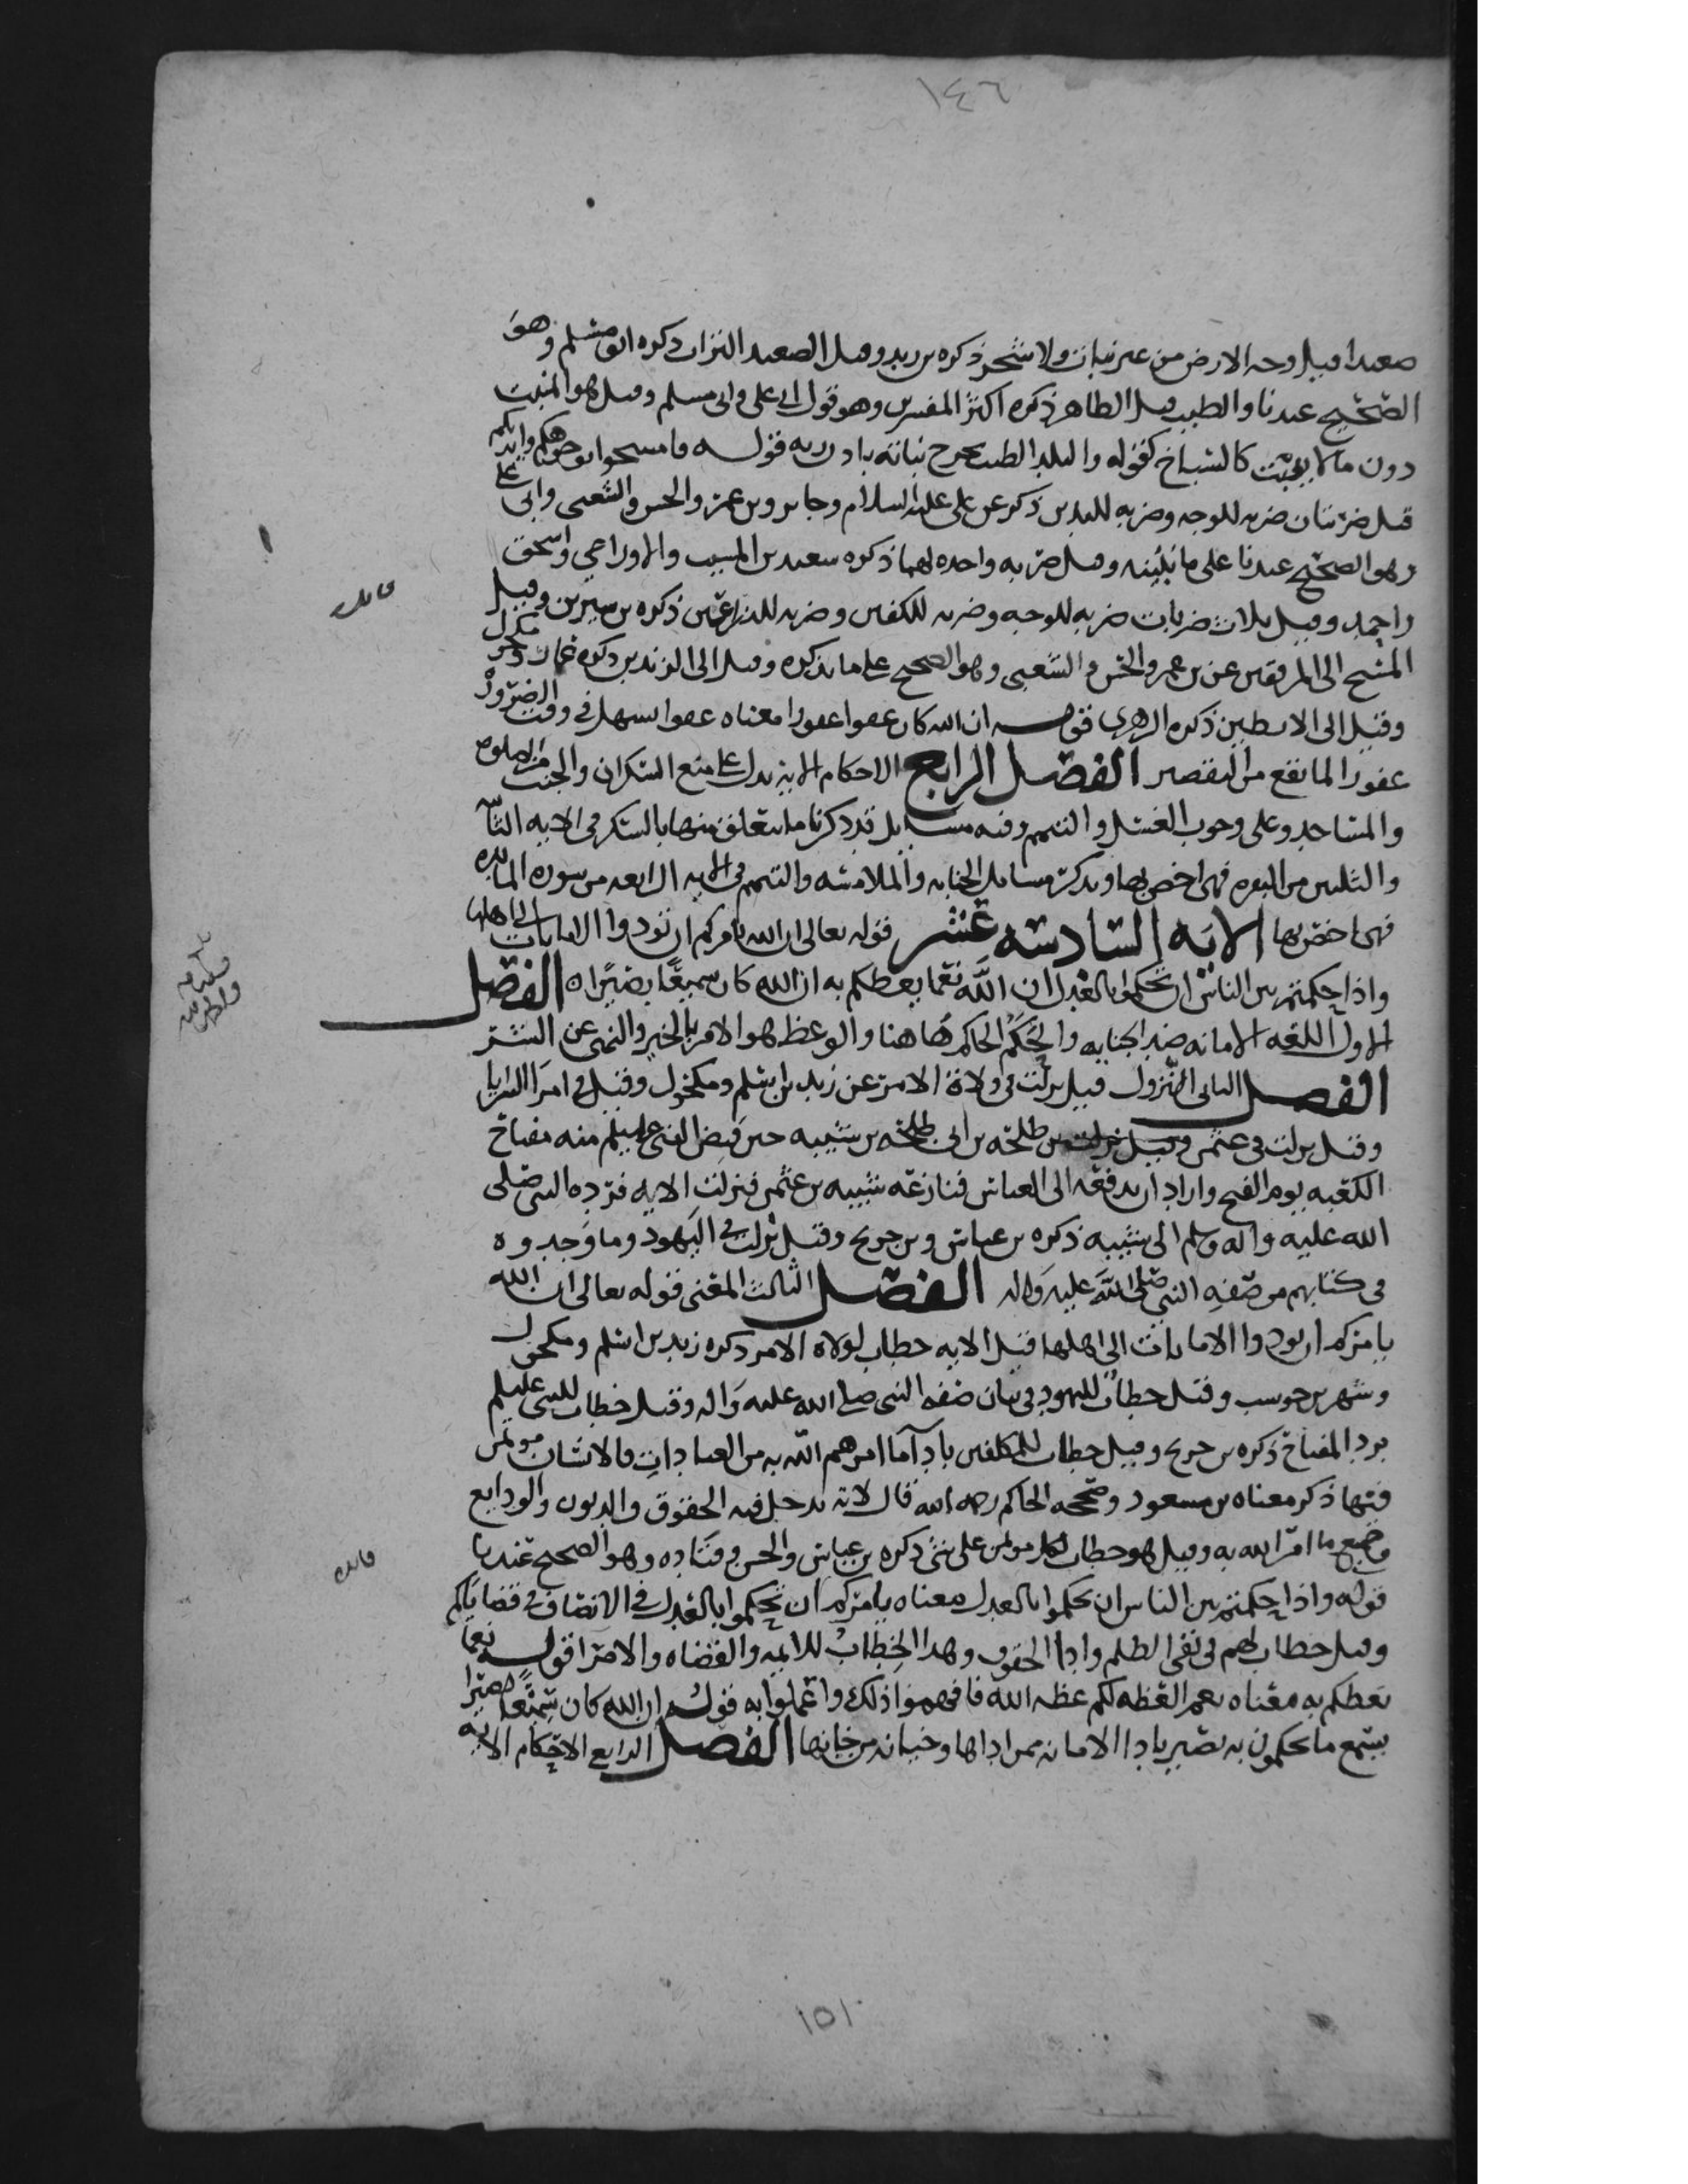 ١٤٦
صعيدا قيل وجه الارض من غير نبات ولا شجر ذكره بن زيد وقيل الصعيد التراب ذكره ابو مسلم وهو
الصحيح عندنا والطيب قيل الطاهر ذكره اكثر المفسرين وهو قول ابي علي وابي مسلم وقيل هو المنبت
دون ما لا ينبت كالسباخ كقوله والبلد الطيب يخرج نباته باذن ربه قوله فامسحوا بوجوهكم وايديكم
قيل ضربتان ضربه للوجه وضربه لليدين ذكر عن علي عليه السلام وجابر وبن عمر والحسن والشعبي وابي علي
وهو الصحيح عندنا على ما نبينه وقيل ضربه واحده لهما ذكره سعيد بن المسيب والاوزاعي واسحق
واحمد وقيل ثلاث ضربات ضربه للوجه وضربه للكفين وضربه للذراعين ذكره بن سيرين وقيل
المسح الى المرفقين عن بن عمر والحسن والشعبي وهو الصحيح على ما نذكره وقيل الى الزندين ذكره عمار ومكحول
وقيل الى الابطين ذكره الزهري قوله ان الله كان عفوا غفورا معناه عفوا يسهل في وقت الضروره
غفورا لما يقع من التقصير الفصل الرابع الاحكام الايه تدل على منع السكران والجنب من الصلوه
والمساجد وعلى وجوب الغسل والتيمم وفيه مسايل قد ذكرنا ما يتعلق منها بالسكر في الايه
والثلثين من البقره فهي اخص بها ونذكر مسايل الجنابه والملامسه والتيمم في الايه الرابعه من سوره المايده
فهي اخص بها الايه السادسه عشر قوله تعالى ان الله يامركم ان تودوا الامانات الى اهلها
واذا حكمتم بين الناس ان تحكموا بالعدل ان الله نعما يعظكم به ان الله كان سميعا بصيرا ه الفصل
الاول اللغه الامانه ضد الخيانه والحكم الحاكم هاهنا والوعظ هو الامر بالخير والنهي عن الشر
الفصل الثاني النزول قيل نزلت في ولاة الامر عن زيد بن اسلم ومكحول وقيل في امرا السرايا
وقيل نزلت في عثمن بن طلحه بن ابي طلحه بن شيبه حين قبض النبي عليلم منه مفتاح
الكعبه يوم الفتح واراد ان يدفعه الى العباس فنازعه شيبه بن عثمن فنزلت الايه فرده النبي صلى
الله عليه واله وسلم الى شيبه ذكره بن عباس وبن جريج وقيل نزلت في اليهود وما وجدوه
في كتابهم من صفه النبي صلى الله عليه واله الفصل الثالث المعنى قوله تعالى ان الله
يامركم ان تودوا الامانات الى اهلها قيل الايه خطاب لولاه الامر ذكره زيد بن اسلم ومكحول
وشهر بن حوشب وقيل خطاب لليهود في بيان صفه النبي صلى الله عليه واله وقيل خطاب للنبي عليلم
برد المفتاح ذكره بن جريج وقيل خطاب للمكلفين بادآ ما امرهم الله به من العبادات فالانسان موتمن
فيها ذكر معناه بن مسعود وصححه الحاكم رحمه الله قال لانه يدخل فيه الحقوق والديون والودايع
وجميع ما امر الله به وقيل هو خطاب لكل موتمن على شي ذكره بن عباس والحسن وقتاده وهو الصحيح عندنا
قوله واذا حكمتم بين الناس ان تحكموا بالعدل معناه يامركم ان تحكموا بالعدل في الانصاف في قضاياكم
وقيل خطاب لهم في نفي الظلم وادا الحقوق وهذا الخطاب للايمه والقضاه والامرا قوله نعما
يعظكم به معناه نعم العظه لكم عظه الله فافهموا ذلك واعملوا به قوله ان الله كان سميعا بصيرا
يسمع ما تحكمون به بصير بادا الامانه ممن اداها وخيانه من خانها الفصل الرابع الاحكام الايه
١٥١